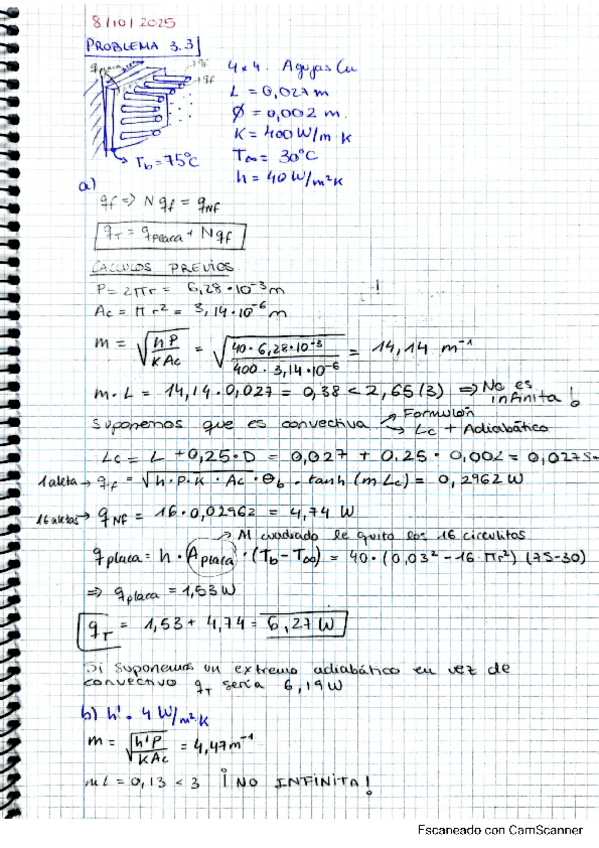 8/10/2025
PROBLEMA 3.3
4x4 Agujas Cu
L = 0,027 m
Ø = 0,002 m.
K = 400 W/m·K
T∞ = 30°C
h = 40 W/m²K
Tb = 75°C
a)
qf => N qf = qNf
qT = qplaca + Nqf
CALCULOS PREVIOS
P = 2πr = 6,28·10⁻³ m
Ac = π r² = 3,14·10⁻⁶ m
m = √(hP/KAc) = √(40·6,28·10⁻³/400·3,14·10⁻⁶) = 14,14 m⁻¹
m·L = 14,14·0,027 = 0,38 < 2,65(3) => No es infinita!
Suponemos que es convectiva → Formulón
→ Lc + Adiabático
Lc = L + 0,25·D = 0,027 + 0.25·0,002 = 0,0275
1 aleta → qf = √(h·P·K·Ac)·θb·tanh(mLc) = 0,2962 W
16 aletas → qNf = 16·0,02962 = 4,74 W
→ Al cuadrado le quito los 16 circulitos
qplaca = h·Aplaca·(Tb-T∞) = 40·(0,03²-16·πr²)(75-30)
=> qplaca = 1,53 W
qT = 1,53 + 4,74 = 6,27 W
Si suponemos un extremo adiabático en vez de
convectivo qT sería 6,19 W
b) h' = 4 W/m²·K
m = √(h'P/KAc) = 4,47 m⁻¹
mL = 0,13 < 3 ¡NO INFINITA!
Escaneado con CamScanner